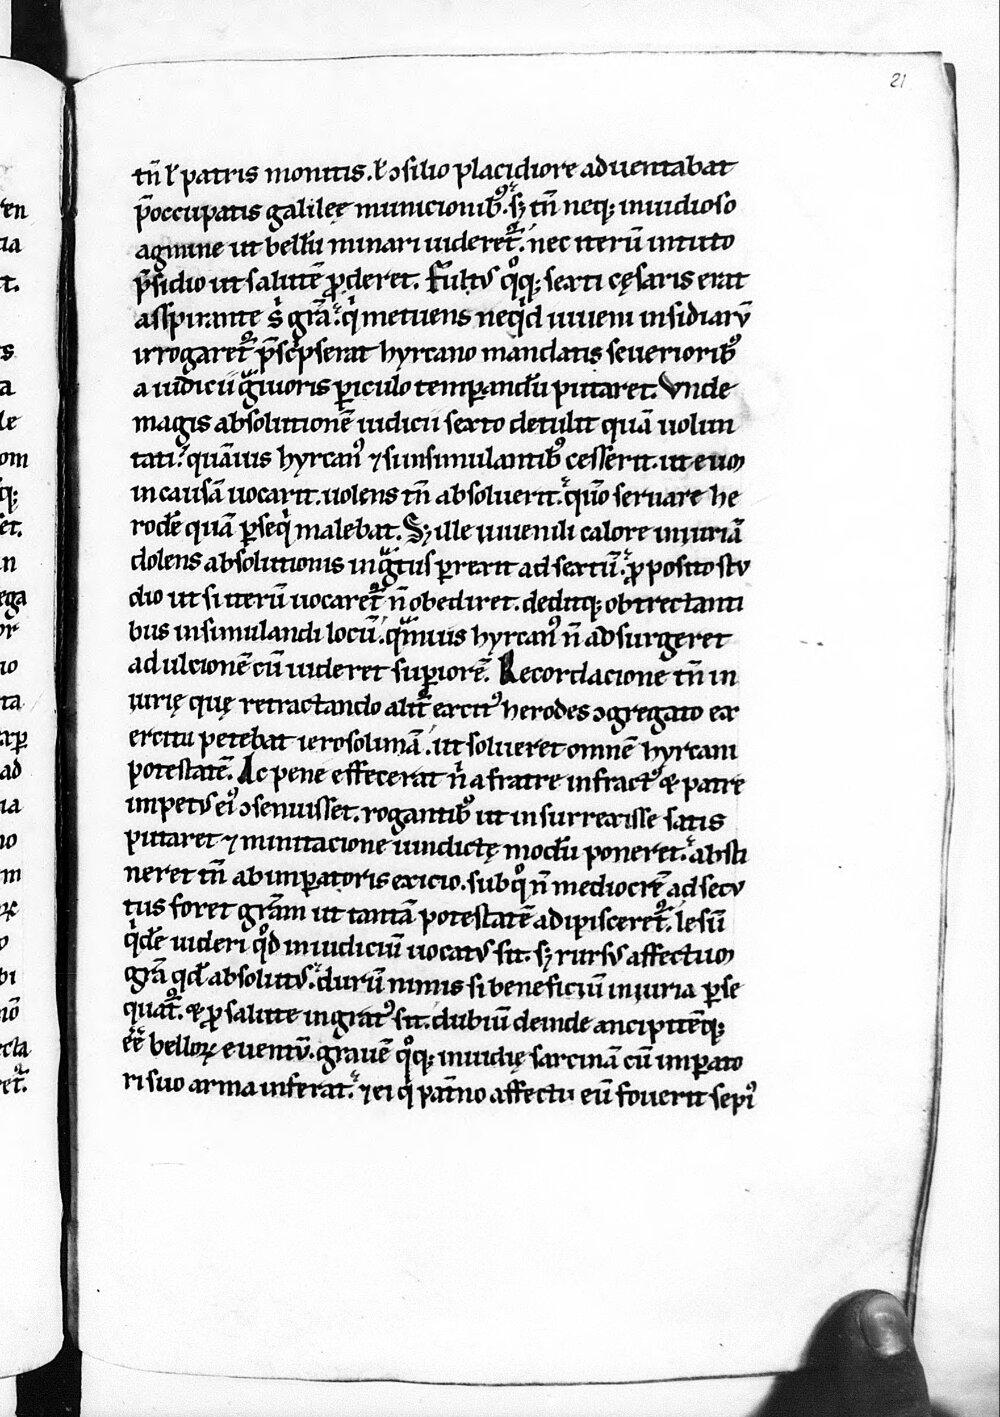 21
tñ ł patris monitis. ł ɔsilio placidiore aduentabat
p̄occupatis galilęę municionibꝰ. sꝫ tñ neq; inuidioso
agmine ut bellū minari uideret᷑. nec iterū intuto
p̄sidio ut salutē ꝓderet. Fultꝰ qͦq; sexti cęsaris erat
asspirante s̓ gr̄a. qͥ metuens neqͥd iuueni insidiarū
irrogaret᷑ p̄scͥpserat hyrcano mandatis seuerioribꝰ
a iudicii gͣuioris ꝑiculo temꝑandū putaret. Vnde
magis absolutionē iudicii sexto detulit quā uolun
tati. quāuis hyrcanꝰ ⁊ sunsimulantibꝰ cesserit. ut eum
in causā uocarit. uolens tñ absoluerit. qͦm seruare he
rodē quā ꝑseqͥ malebat. Sꝫ ille iuuenili calore iniuriā
dolens absolutionis ingͣtus ꝑrexit ad sextū. ꝓposito stu
dio ut si iterū uocaret᷑ ñ obediret. deditq; obtrectanti
bus insimulandi locū. qͣmuis hyrcanꝰ ñ adsurgeret
ad ulcionē cū uideret suꝑiorē. Recordacione tñ in
iurię quę retractando alit᷑ excitꝰ herodes ɔgregato ex
ercitu petebat ierosolimā. ut solueret omnē hyrcani
potestatē. Ac pene effecerat nͥ a fratre infractꝰ & patre
impetꝰ eiꝰ ɔsenuisset. rogantibꝰ ut insurrexisse satis
putaret ⁊ minitacione uindictę modū poneret. absti
neret tñ ab imꝑatoris exicio. sub qͦ ñ mediocrē ad secu
tus foret gr̄am ut tantā potestatē adipisceret᷑. lesū
qͥdē uideri qͦd in iudiciū uocatꝰ sit. sꝫ rursꝰ affectum
gr̄a qd̄ absolutꝰ. durū nimis si beneficiū iniuria ꝑse
quat᷑. & ꝓ salute ingratꝰ sit. dubiū deinde ancipitēq;
ēē belloꝝ euentū. grauē qͦq; inuidię sarcinā cū imꝑato
ri suo arma inferat. ⁊ ei qͥ pat̄no affectu eū fouerit sepiꝰ